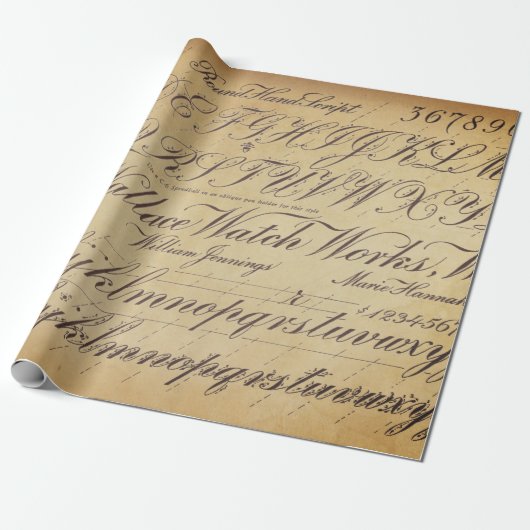 Round Hand Script
367890
C E F G H I J K L M
R S T U V W X Y Z
C-6 Speedball or an oblique pen holder for this style
Wallace Watch Works, W
William Jennings
Marie Hannah
r
$1234567
jklmnopqrstuvwxy
klmnopqrstuvwxy